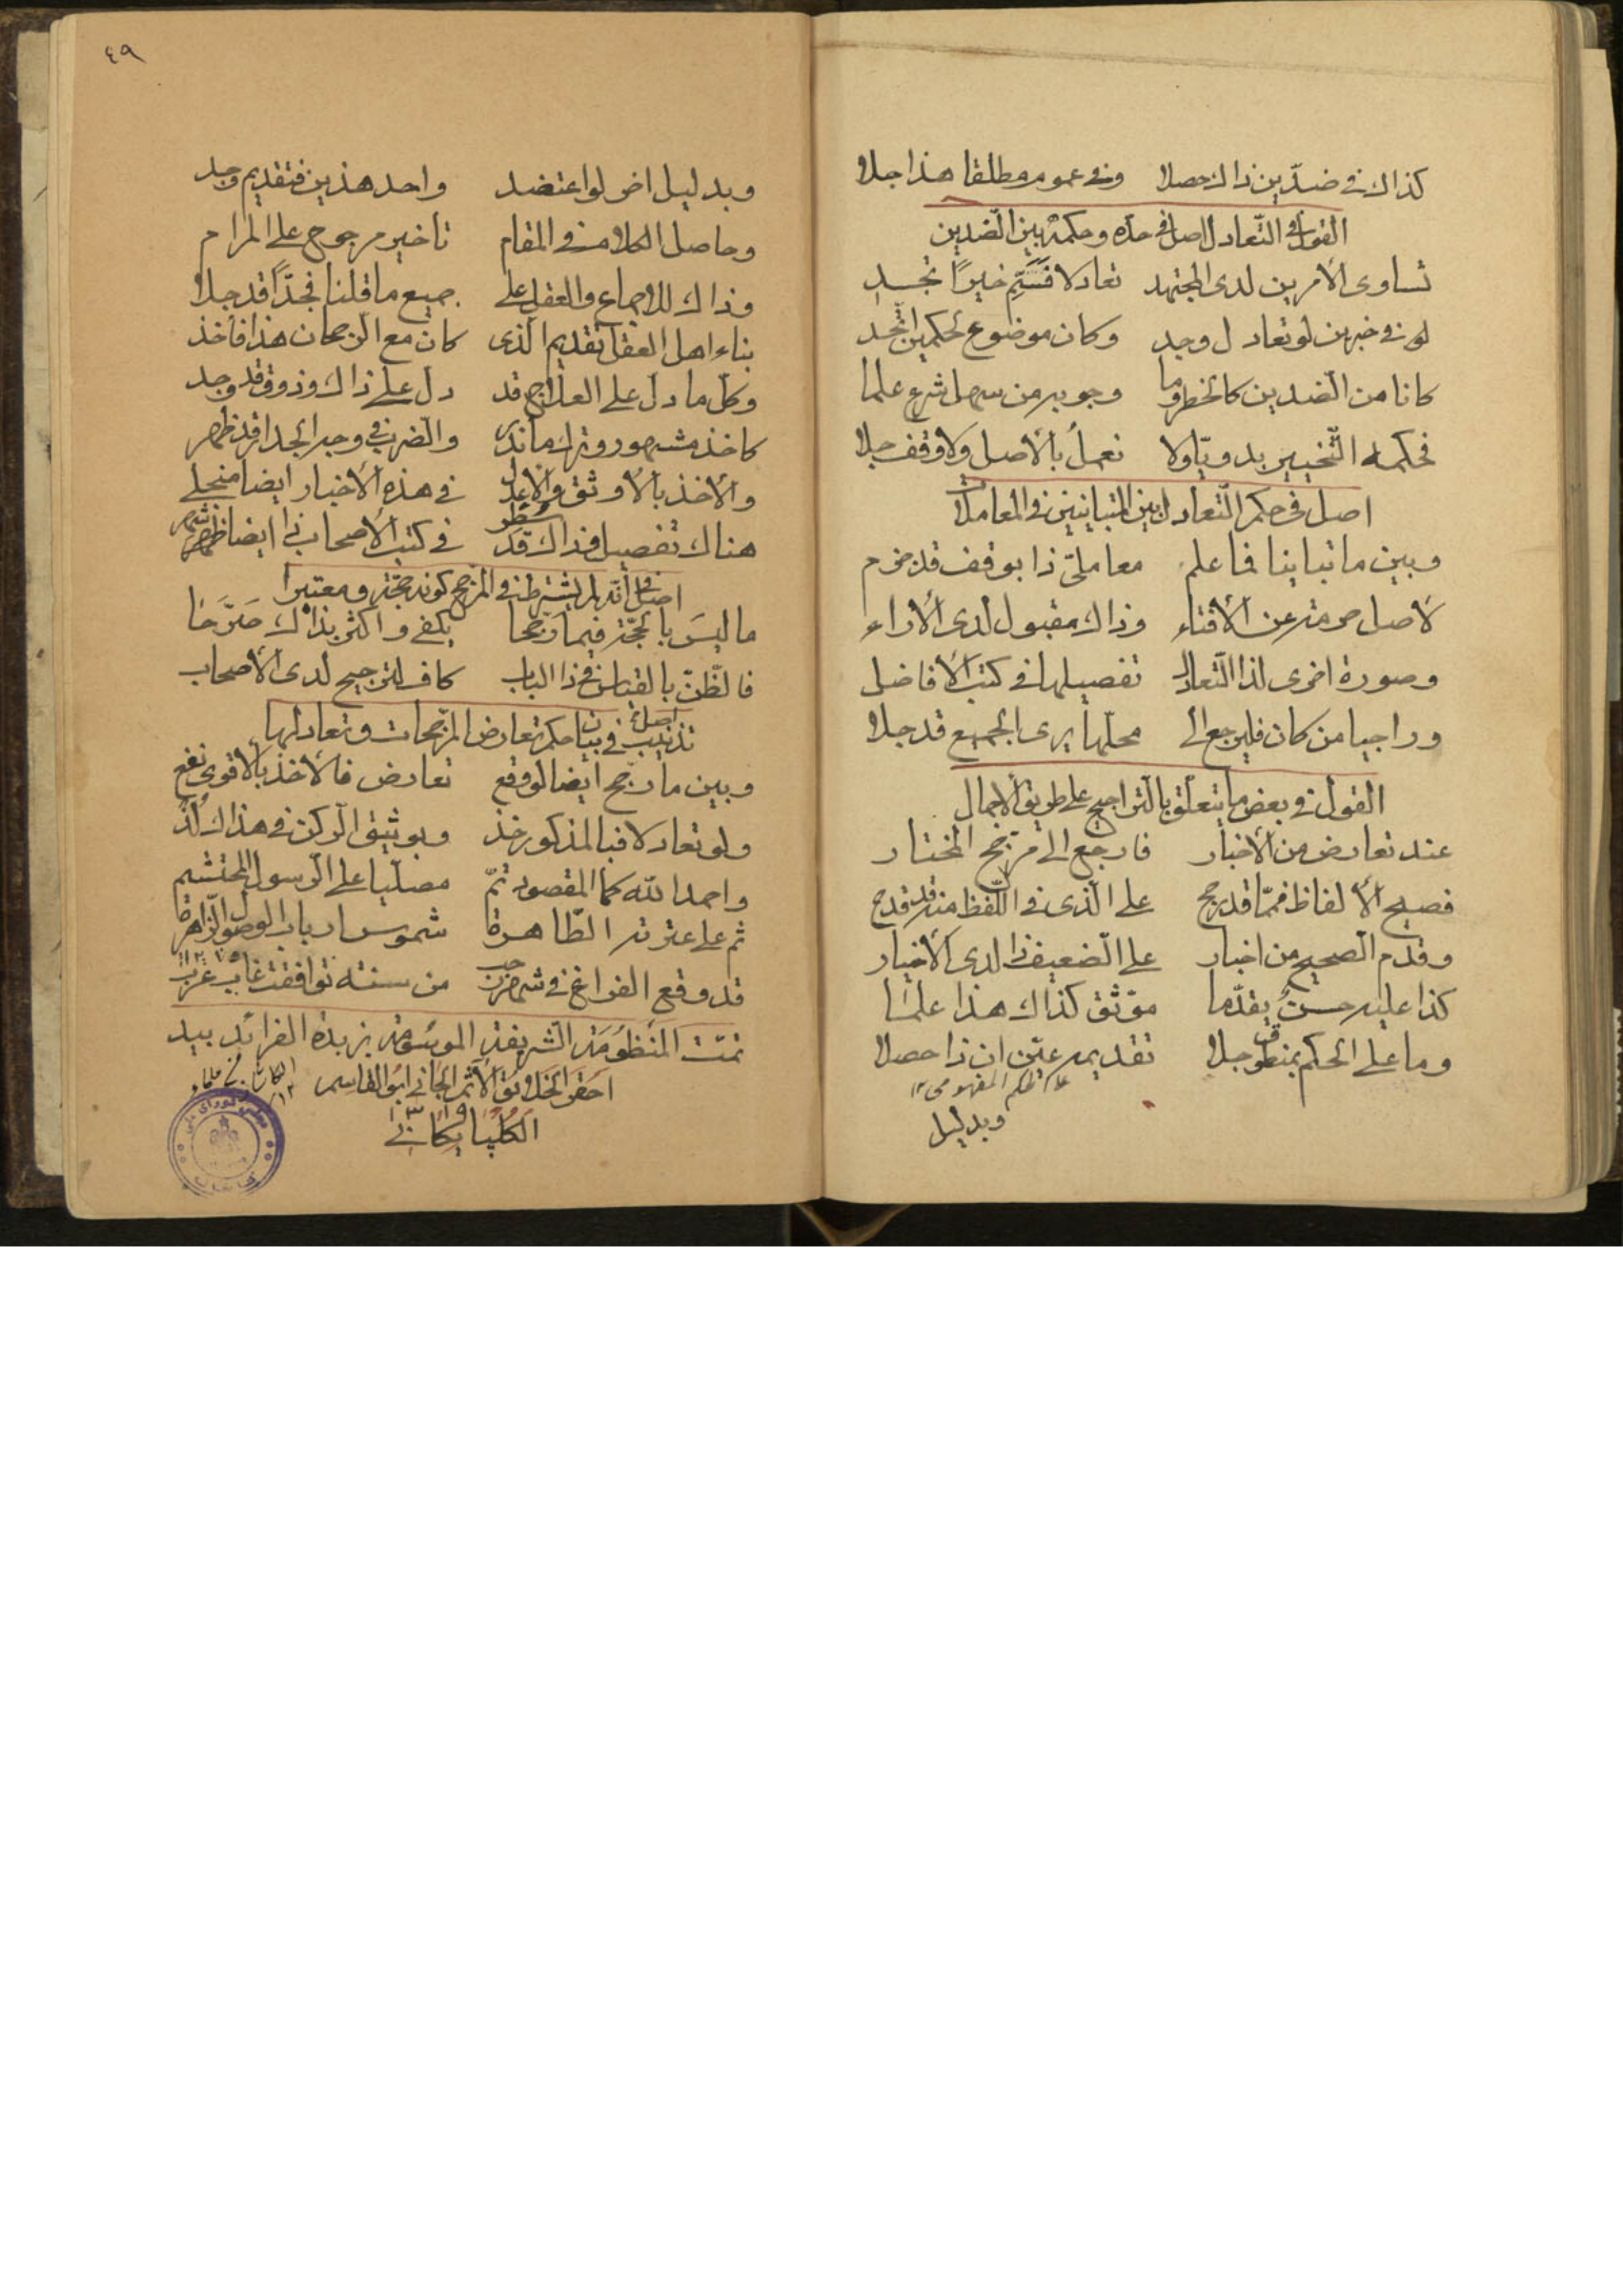 كذاك فى ضدّين ذاك حصلا وفى عموم مطلقا هذا جلا
القول فى التّعادل اصل فى حدّه وحكمه بين الضّدين
تساوى الأمرين لدى المجتهد تعادلا فسَمِّ خيرًا تجد
لو فى خبرين لو تعادل وجد وكان موضوع لحكمين اتّحد
كانا من الضّدين كالخطر وما وجوبه من سهل شرع علما
فحكمه التّخيير بدويّا ولا نعمل بالأصل ولا وقف جلا
اصل فى حكم التّعادل بين المتباينين فى المعاملات
وبين ما تباينا فاعلم معاملىّ ذا بوقف قد جزم
لأصل حرمة عن الأفتاء وذاك مقبول لدى الأراء
وصورة اخرى لذا التّعادل تفصيلها فى كتب الأفاضل
وراجيا من كان فليرجع الى محلّها يرى الجميع قد جلا
القول فى بعض ما يتعلّق بالتّراجيح على طريق الأجمال
عند تعارض من الأخبار فارجع الى مرجّح المختار
فصيح الألفاظ فمّا قد رجح على الّذى فى اللّفظ منه قد قدح
وقدم الصحيح من اخبار على الضّعيف ذا لدى الأخيار
كذا عليه حسنٌ يقدّما موّثق كذاك هذا علما
وما على الحكم بمنطوق جلا تقديمه عيّن ان ذا حصلا
على الحكم المفهومى ١٢
وبدليل
٤٩
وبدليل اخر لو اعتضد واحد هذين فتقديم وجد
وحاصل الكلام فى المقام تأخير مرجوح على المرام
وذاك للاجماع والعقل على جميع ما قلنا فجدّا قد جلا
بناء اهل العقل تقديم الّذى كان مع الرّجحان هذا فأخذ
وكلّ ما دل على العلاج قد دل على ذاك وذوق قد وجد
كاخذ مشهور وترك ما ندر والضّرب فى وجه الجدار قد ظهر
والأخذ بالأوثق والأعدل فى هذه الأخبار ايضا منجلى
هناك تفصيل فذاك قد سُطر فى كتب الأصحاب ذا ايضا ظهر
اصل فى انّه لم يشترط فى المرجّح كونه حجّة ومعتبرا
ما ليسَ بالحجّة فيما رَجّحا يكفى واكثر بذاك صَرَّحا
فالظّنّ بالقياس فى ذا الباب كاف لترجيح لدى الأصحاب
تذنيب اصل فى بيان حكم تعارض المرّجحات وتعادلها
وبين ما رجّح ايضا لو وقع تعارض فالأخذ بالأقوى نفع
ولو تعادلا فبالمذكور خذ وبوثيق الرّكن فى هذاك لُذ
واحمد اللّه كما المقصود تمّ مصلّيا على الرّسول المحتشم
ثم على عترته الطّاهرة شموس ارباب الوصول الزّاهرة
قد وقع الفراغ فى شهر رجب من سنته توافقت غاب غرب
تمّت المنظومَة الشّريفة الموسُومة بزبدة الفرائد بيد
احقر الخلائق الأثم الجانى ابو القاسم
الكلپايكانى